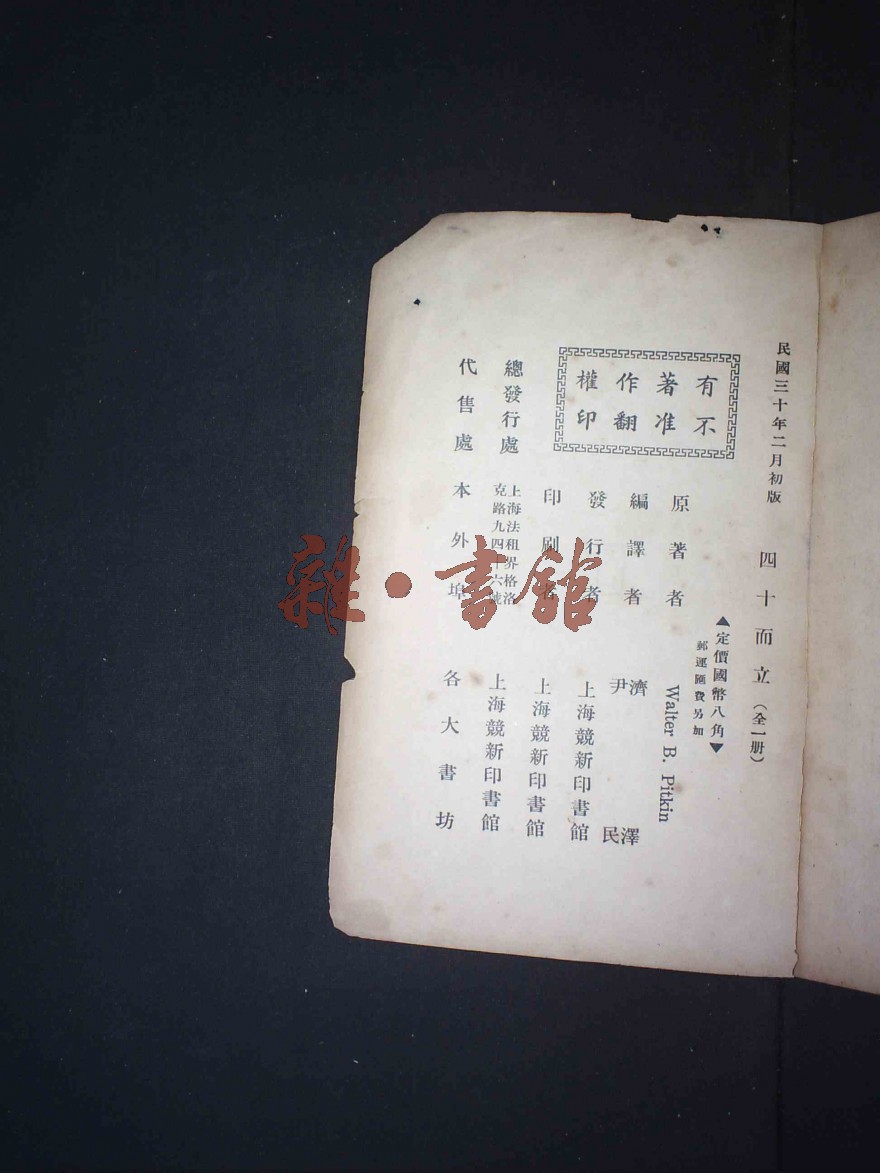 民國三十年二月初版
四十而立(全一册)
▲定價國幣八角▼
郵運匯費另加
有著作權
不准翻印
原著者 Walter B. Pitkin
編譯者 濟澤
尹民
發行者 上海競新印書館
印刷者 上海競新印書館
總發行處 上海法租界格洛
克路九四十六號 上海競新印書館
代售處 本外埠各大書坊
雜·書館